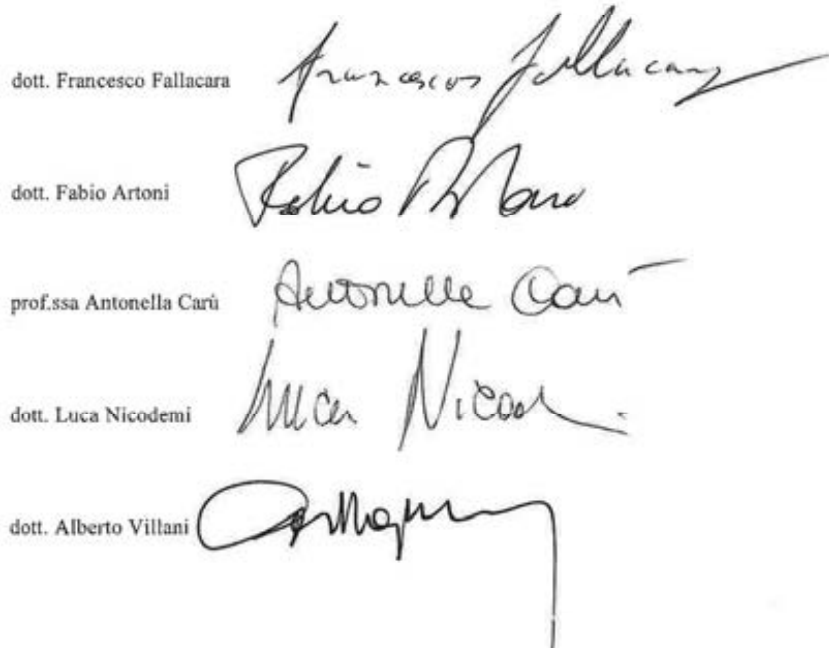 dott. Francesco Fallacara Francesco Fallacara
dott. Fabio Artoni Fabio
prof.ssa Antonella Carù Antonella Carù
dott. Luca Nicodemi Luca Nicod
dott. Alberto Villani